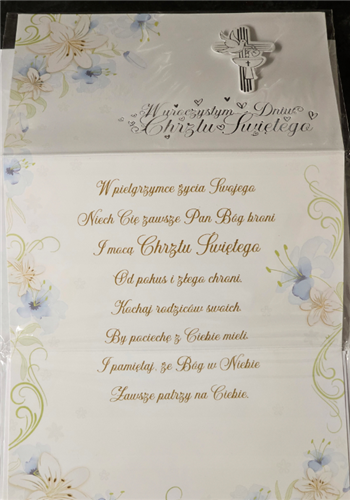 W uroczystym Dniu
Chrztu Świętego
W pielgrzymce życia Swojego
Niech Cię zawsze Pan Bóg broni
I mocą Chrztu Świętego
Od pokus i złego chroni.
Kochaj rodziców swoich
By pociechę z Ciebie mieli.
I pamiętaj, że Bóg w Niebie
Zawsze patrzy na Ciebie.